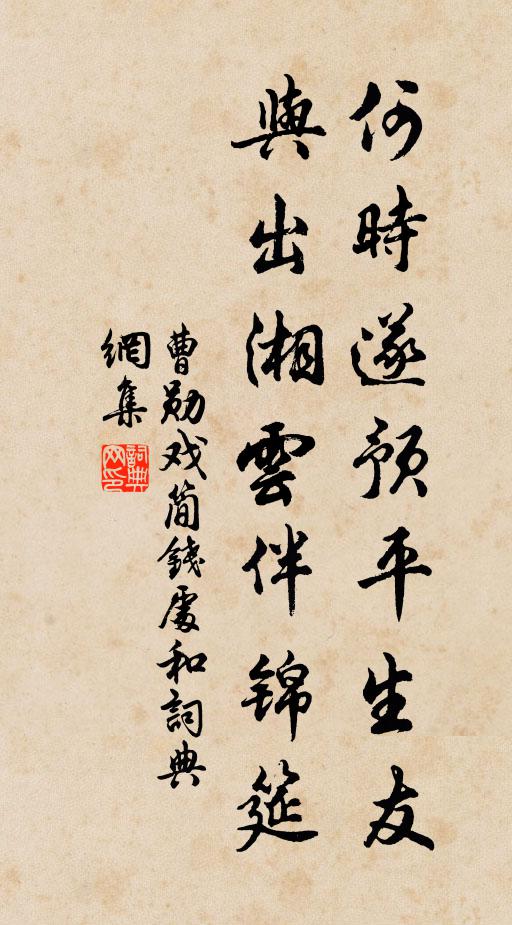 何時遂預平生友
與出湘雲伴錦筵
曹勛戏简錢處和詞典
網集
詞典网印